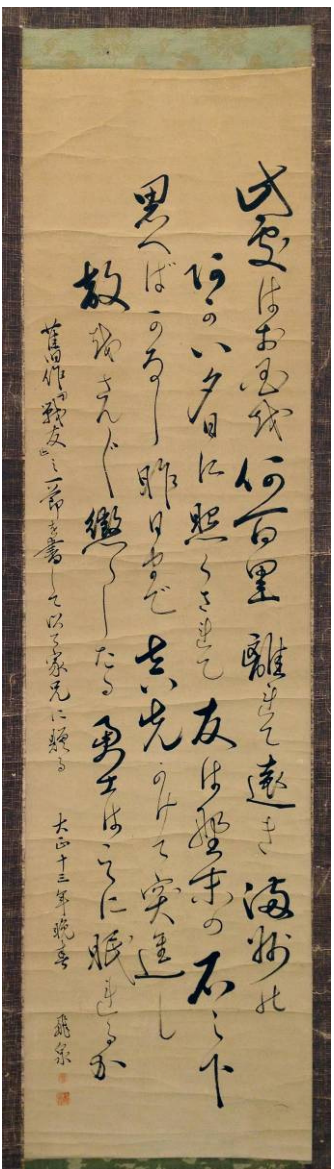 此處はお国を何百里離れて遠き満州の
あかい夕日に照らされて友は野末の石之下
思へばかなし昨日まで真先かけて突進し
敵をさんざん懲らしたる勇士はこゝに眠れるか
舊作「戰友」之一節を書して以て家兄に贈る 大正十三年晩春 飛泉